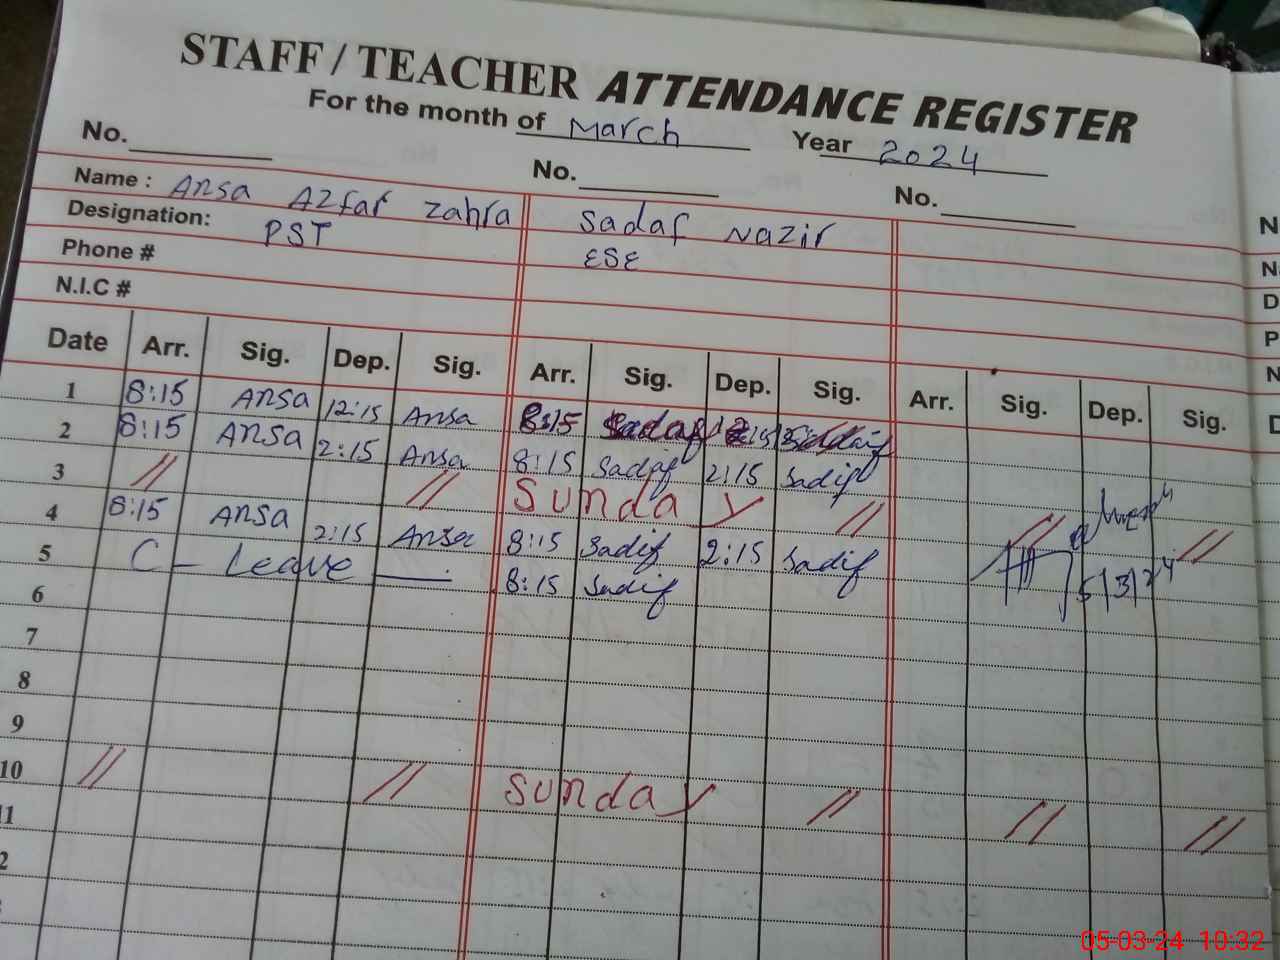 STAFF / TEACHER ATTENDANCE REGISTER
For the month of March Year 2024
No. No. No.
Name : Ansa Azfar Zahra Sadaf Nazir
Designation: PST ESE
Phone #
N.I.C #
Date Arr. Sig. Dep. Sig. Arr. Sig. Dep. Sig. Arr. Sig. Dep. Sig.
1 8:15 Ansa 12:15 Ansa 8:15 Sadaf 12:15
2 8:15 Ansa 2:15 Ansa 8:15 Sadaf 2:15 Sadif
3 // // Sunday // // //
4 8:15 Ansa 2:15 Ansa 8:15 Sadif 2:15 Sadif
5 C - Leave 8:15 Sadif 5/3/24
6
7
8
9
10 // // Sunday // // //
11
2
05-03-24 10:32